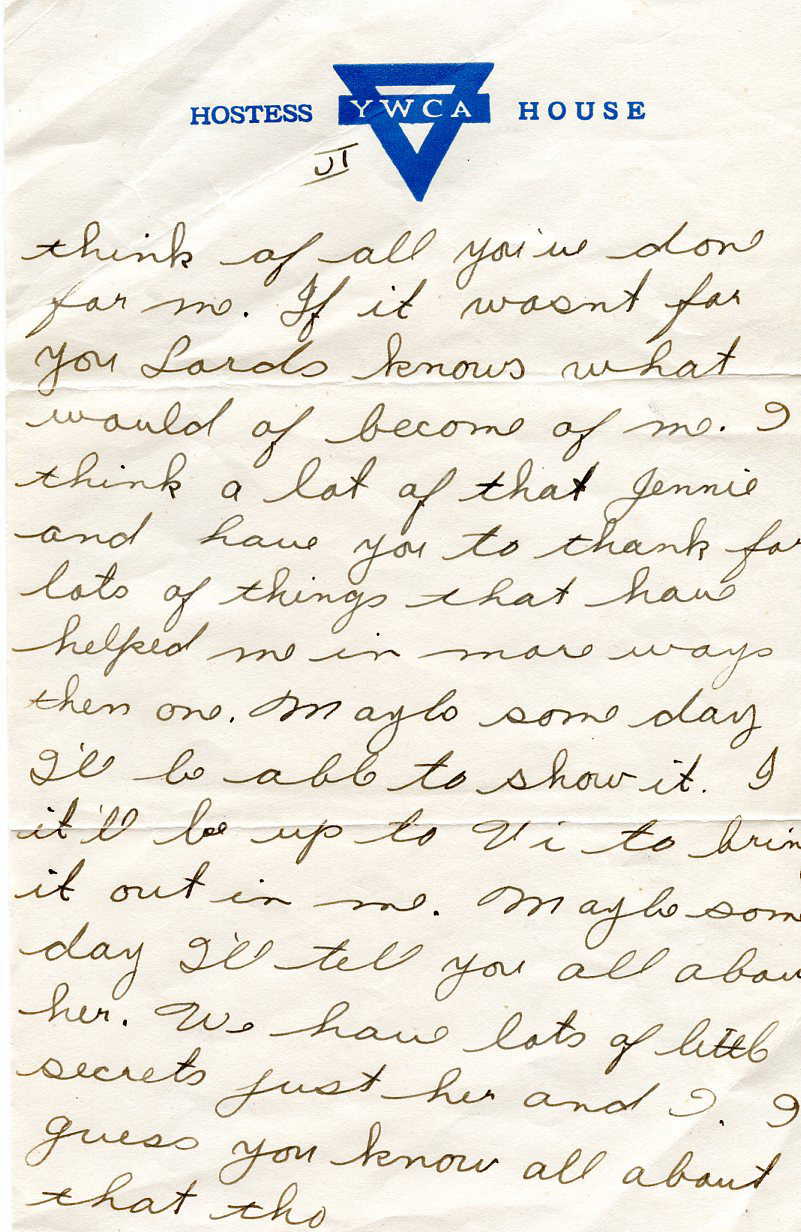 HOSTESS YWCA HOUSE
VI
think of all you've done
for me. If it wasnt for
you Lords knows what
would of become of me. I
think a lot of that Jennie
and have you to thank for
lots of things that have
helped me in more ways
then one. Maybe some day
I'll be able to show it. I
it'll be up to Vi to brin
it out in me. Maybe some
day I'll tell you all abou
her. We have lots of little
secrets just her and I. I
guess you know all about
that tho